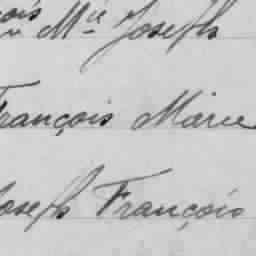 ois Mie Joseph
François Marie
Joseph François